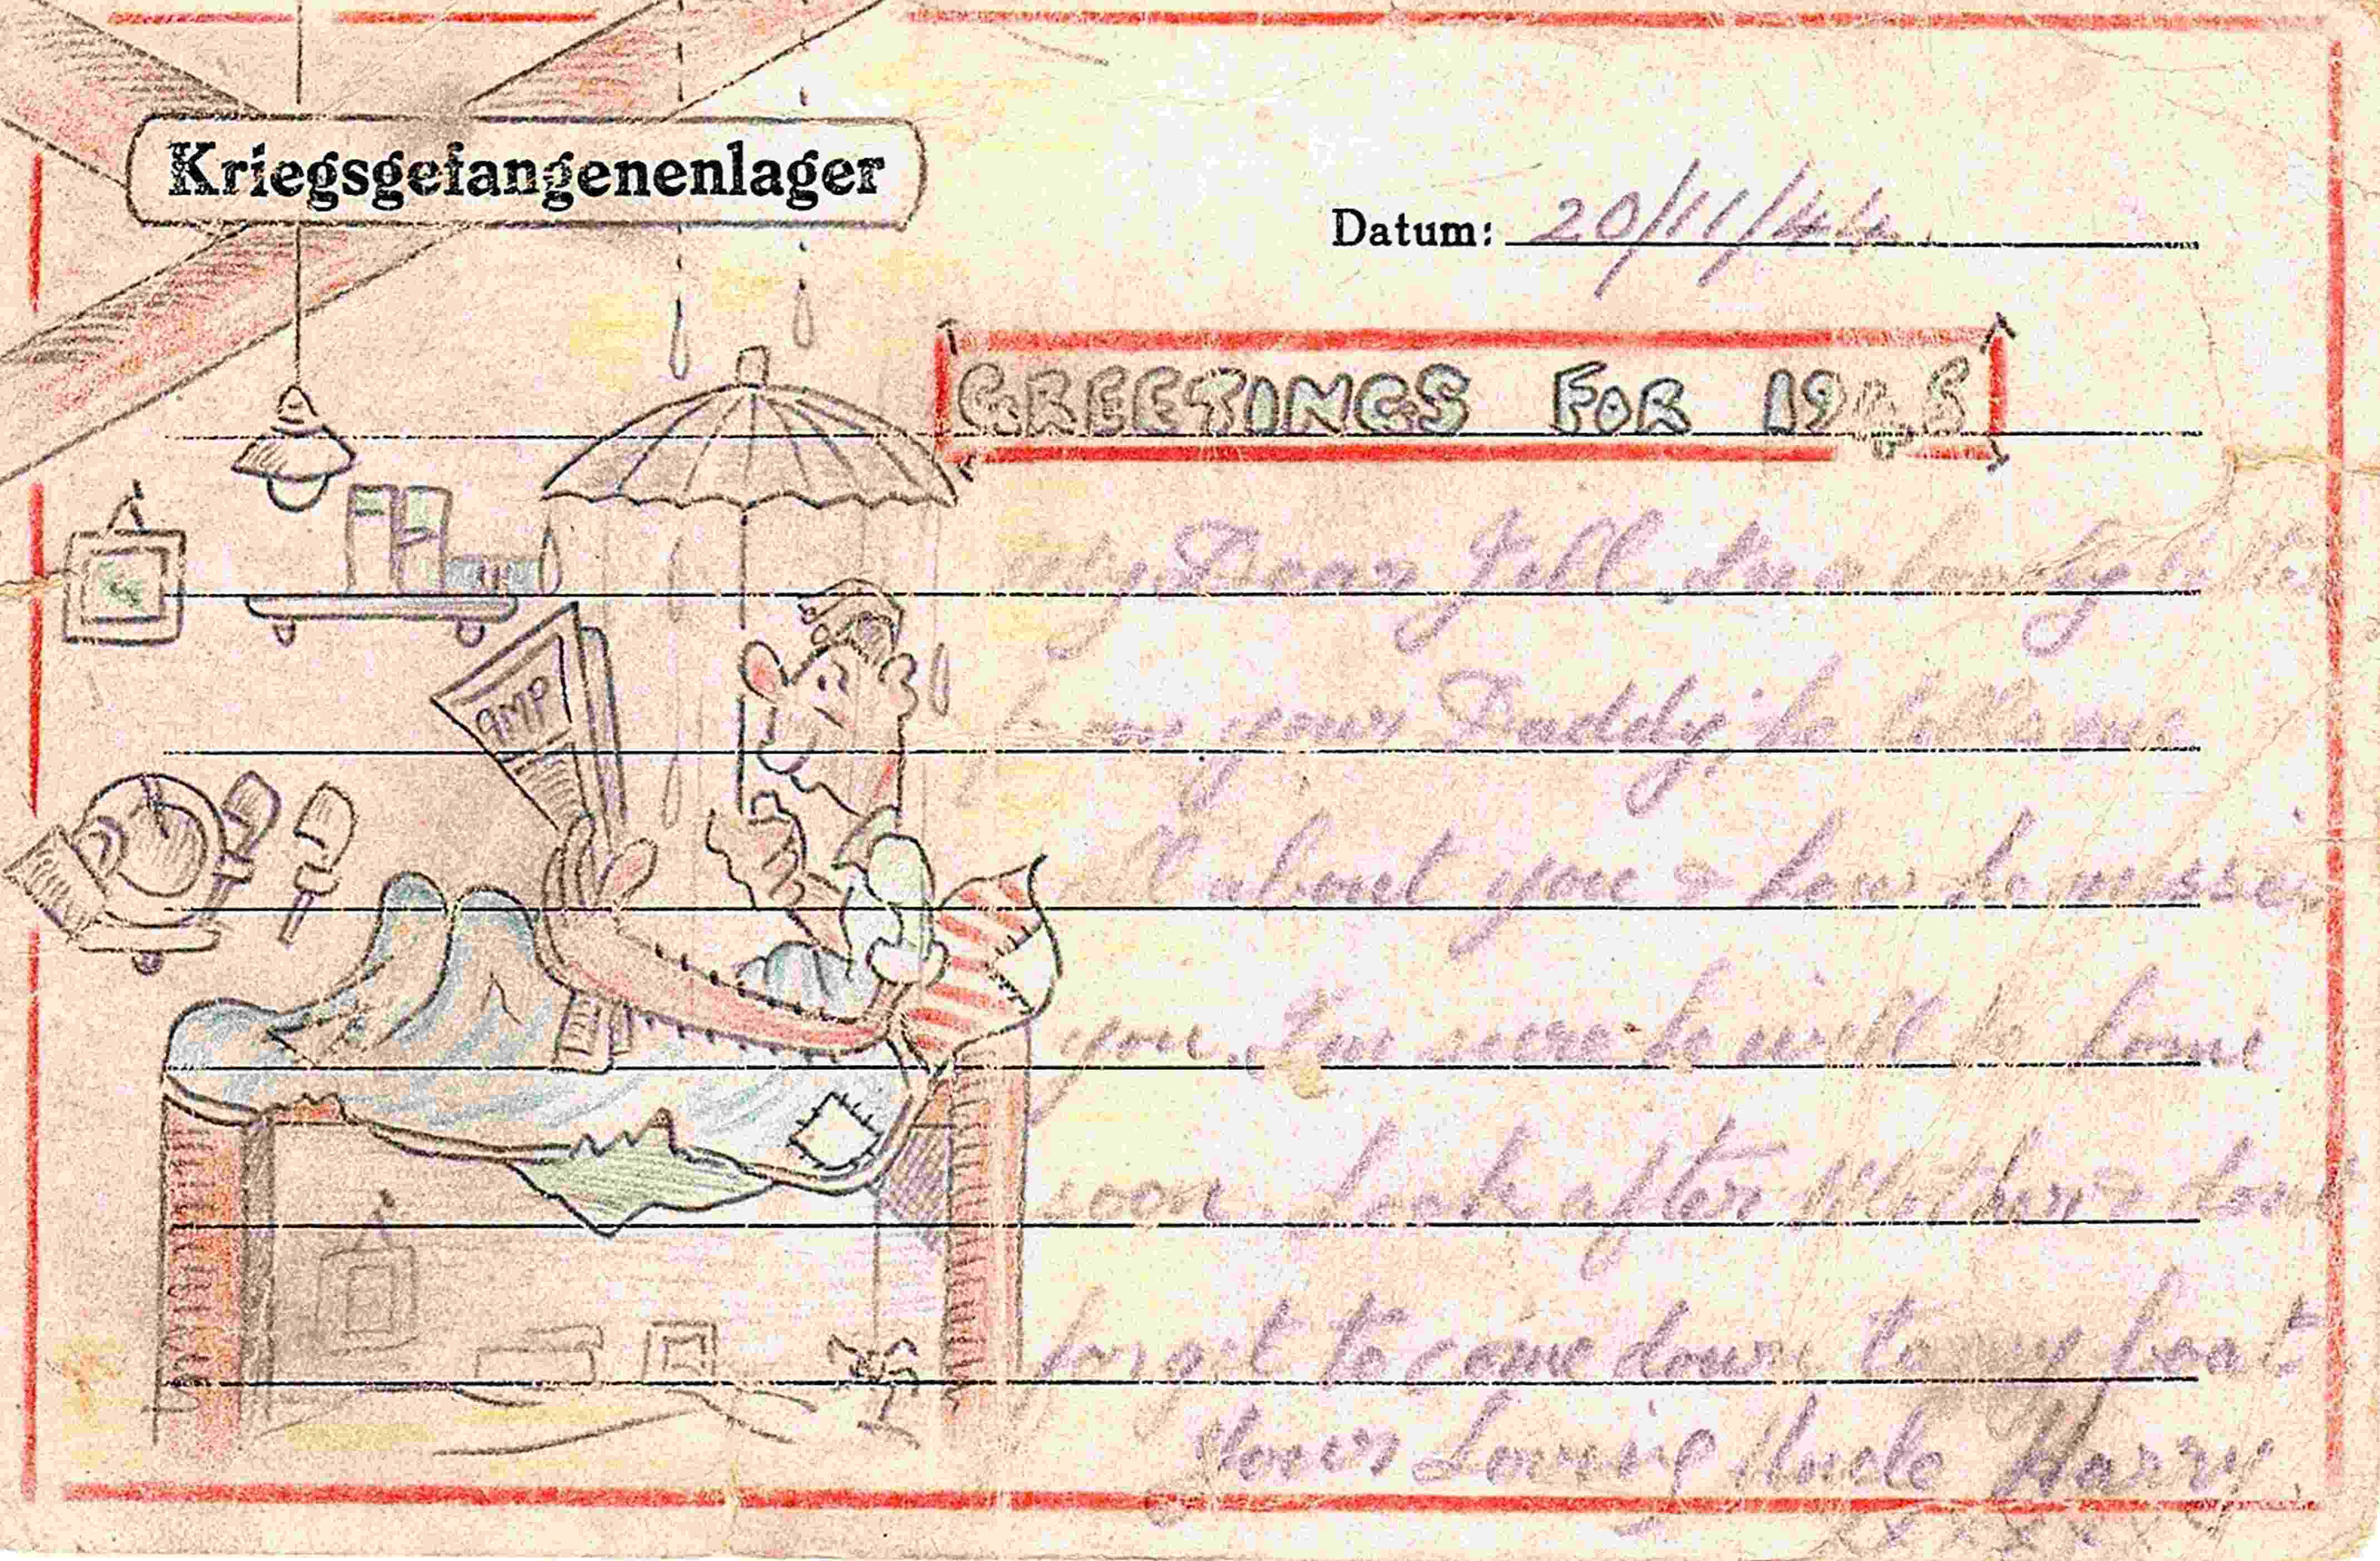 Kriegsgefangenenlager
Datum: 20/11/44.
GREETINGS FOR 1945
AMP
My Dear Jill. Im a lonely
from your Daddy, he tells me
all about you & how he misses
you. Im sure he will be home
soon. Look after Mother & dont
forget to come down to my boat
Your Loving Uncle Harry